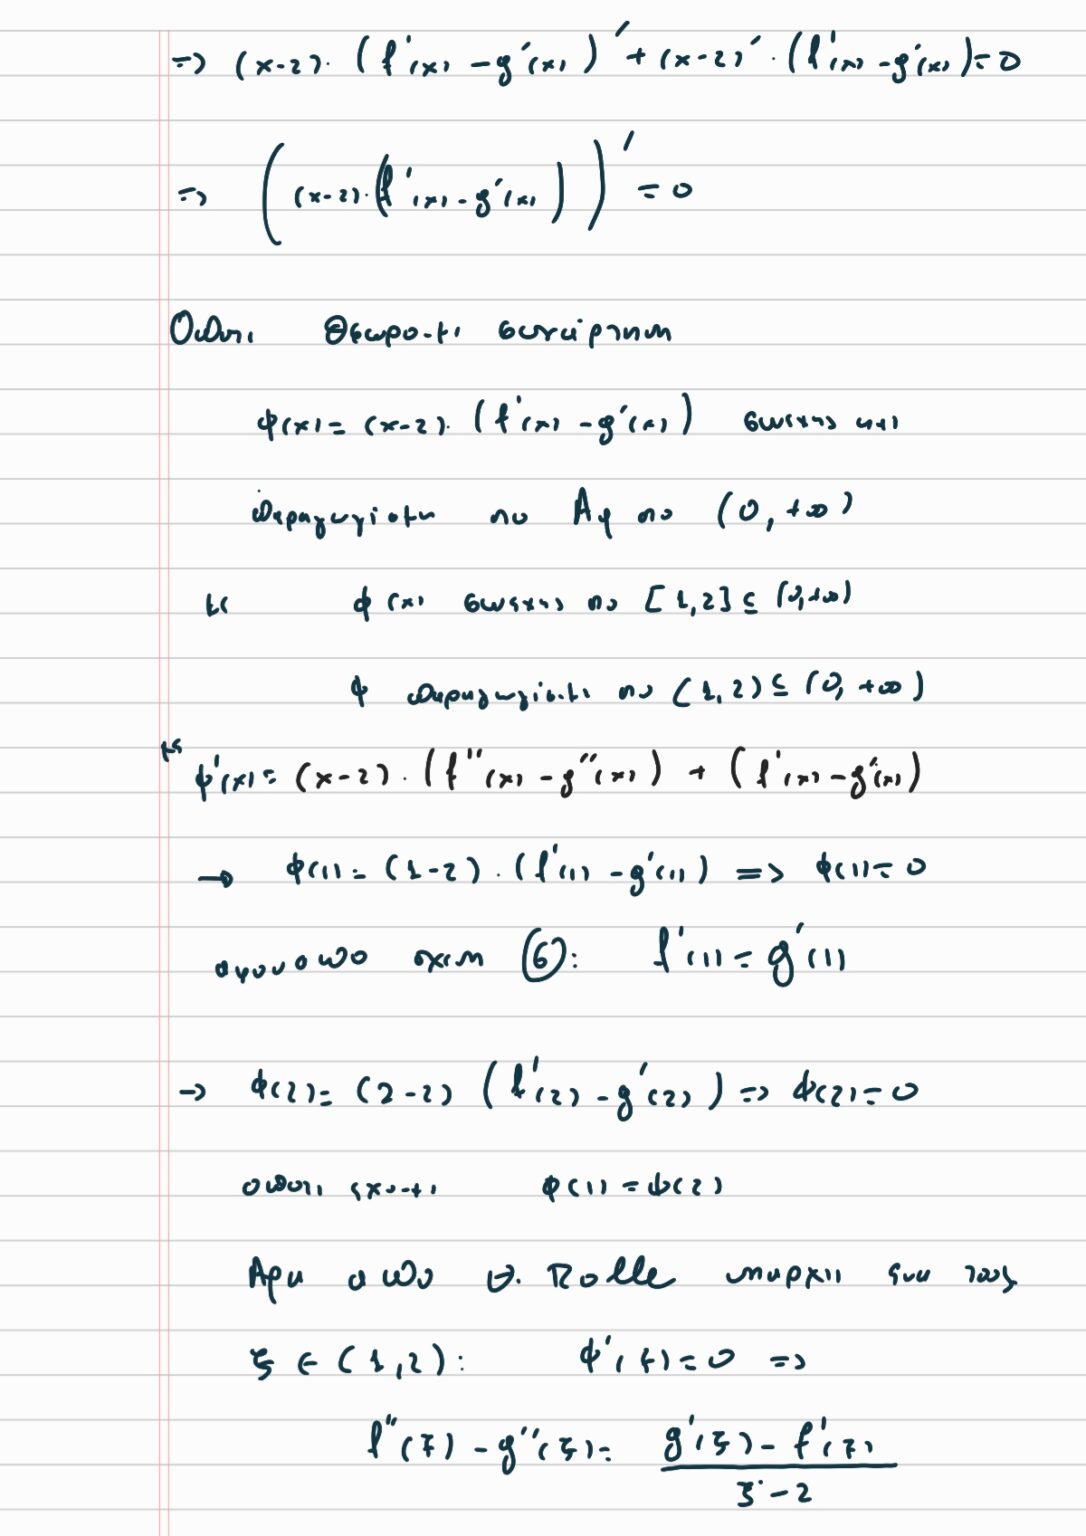 => (x-2)·(f'(x) -g'(x))' + (x-2)'·(f'(x) -g'(x))=0
=> ((x-2)·(f'(x) - g'(x)))' = 0
Οπότε Θεωρούμε συνάρτηση
φ(x) = (x-2)·(f'(x) -g'(x)) συνεχής και
παραγωγίσιμη στο Αφ το (0, +∞)
με φ(x) συνεχής στο [1,2] ⊆ (0,+∞)
φ παραγωγίσιμη στο (1,2) ⊆ (0, +∞)
με φ'(x) = (x-2)·(f''(x) -g''(x)) + (f'(x) -g'(x))
→ φ(1) = (1-2)·(f'(1) -g'(1)) => φ(1) = 0
αφου από σχέση ⑥: f'(1) = g'(1)
→ φ(2) = (2-2) (f'(2) -g'(2)) => φ(2) = 0
οπότε έχουμε φ(1) = φ(2)
Άρα από Θ. Rolle υπάρχει ένα τουλ
ξ ∈ (1,2): φ'(ξ) = 0 =>
f''(ξ) -g''(ξ) = g'(ξ) - f'(ξ)
ξ - 2